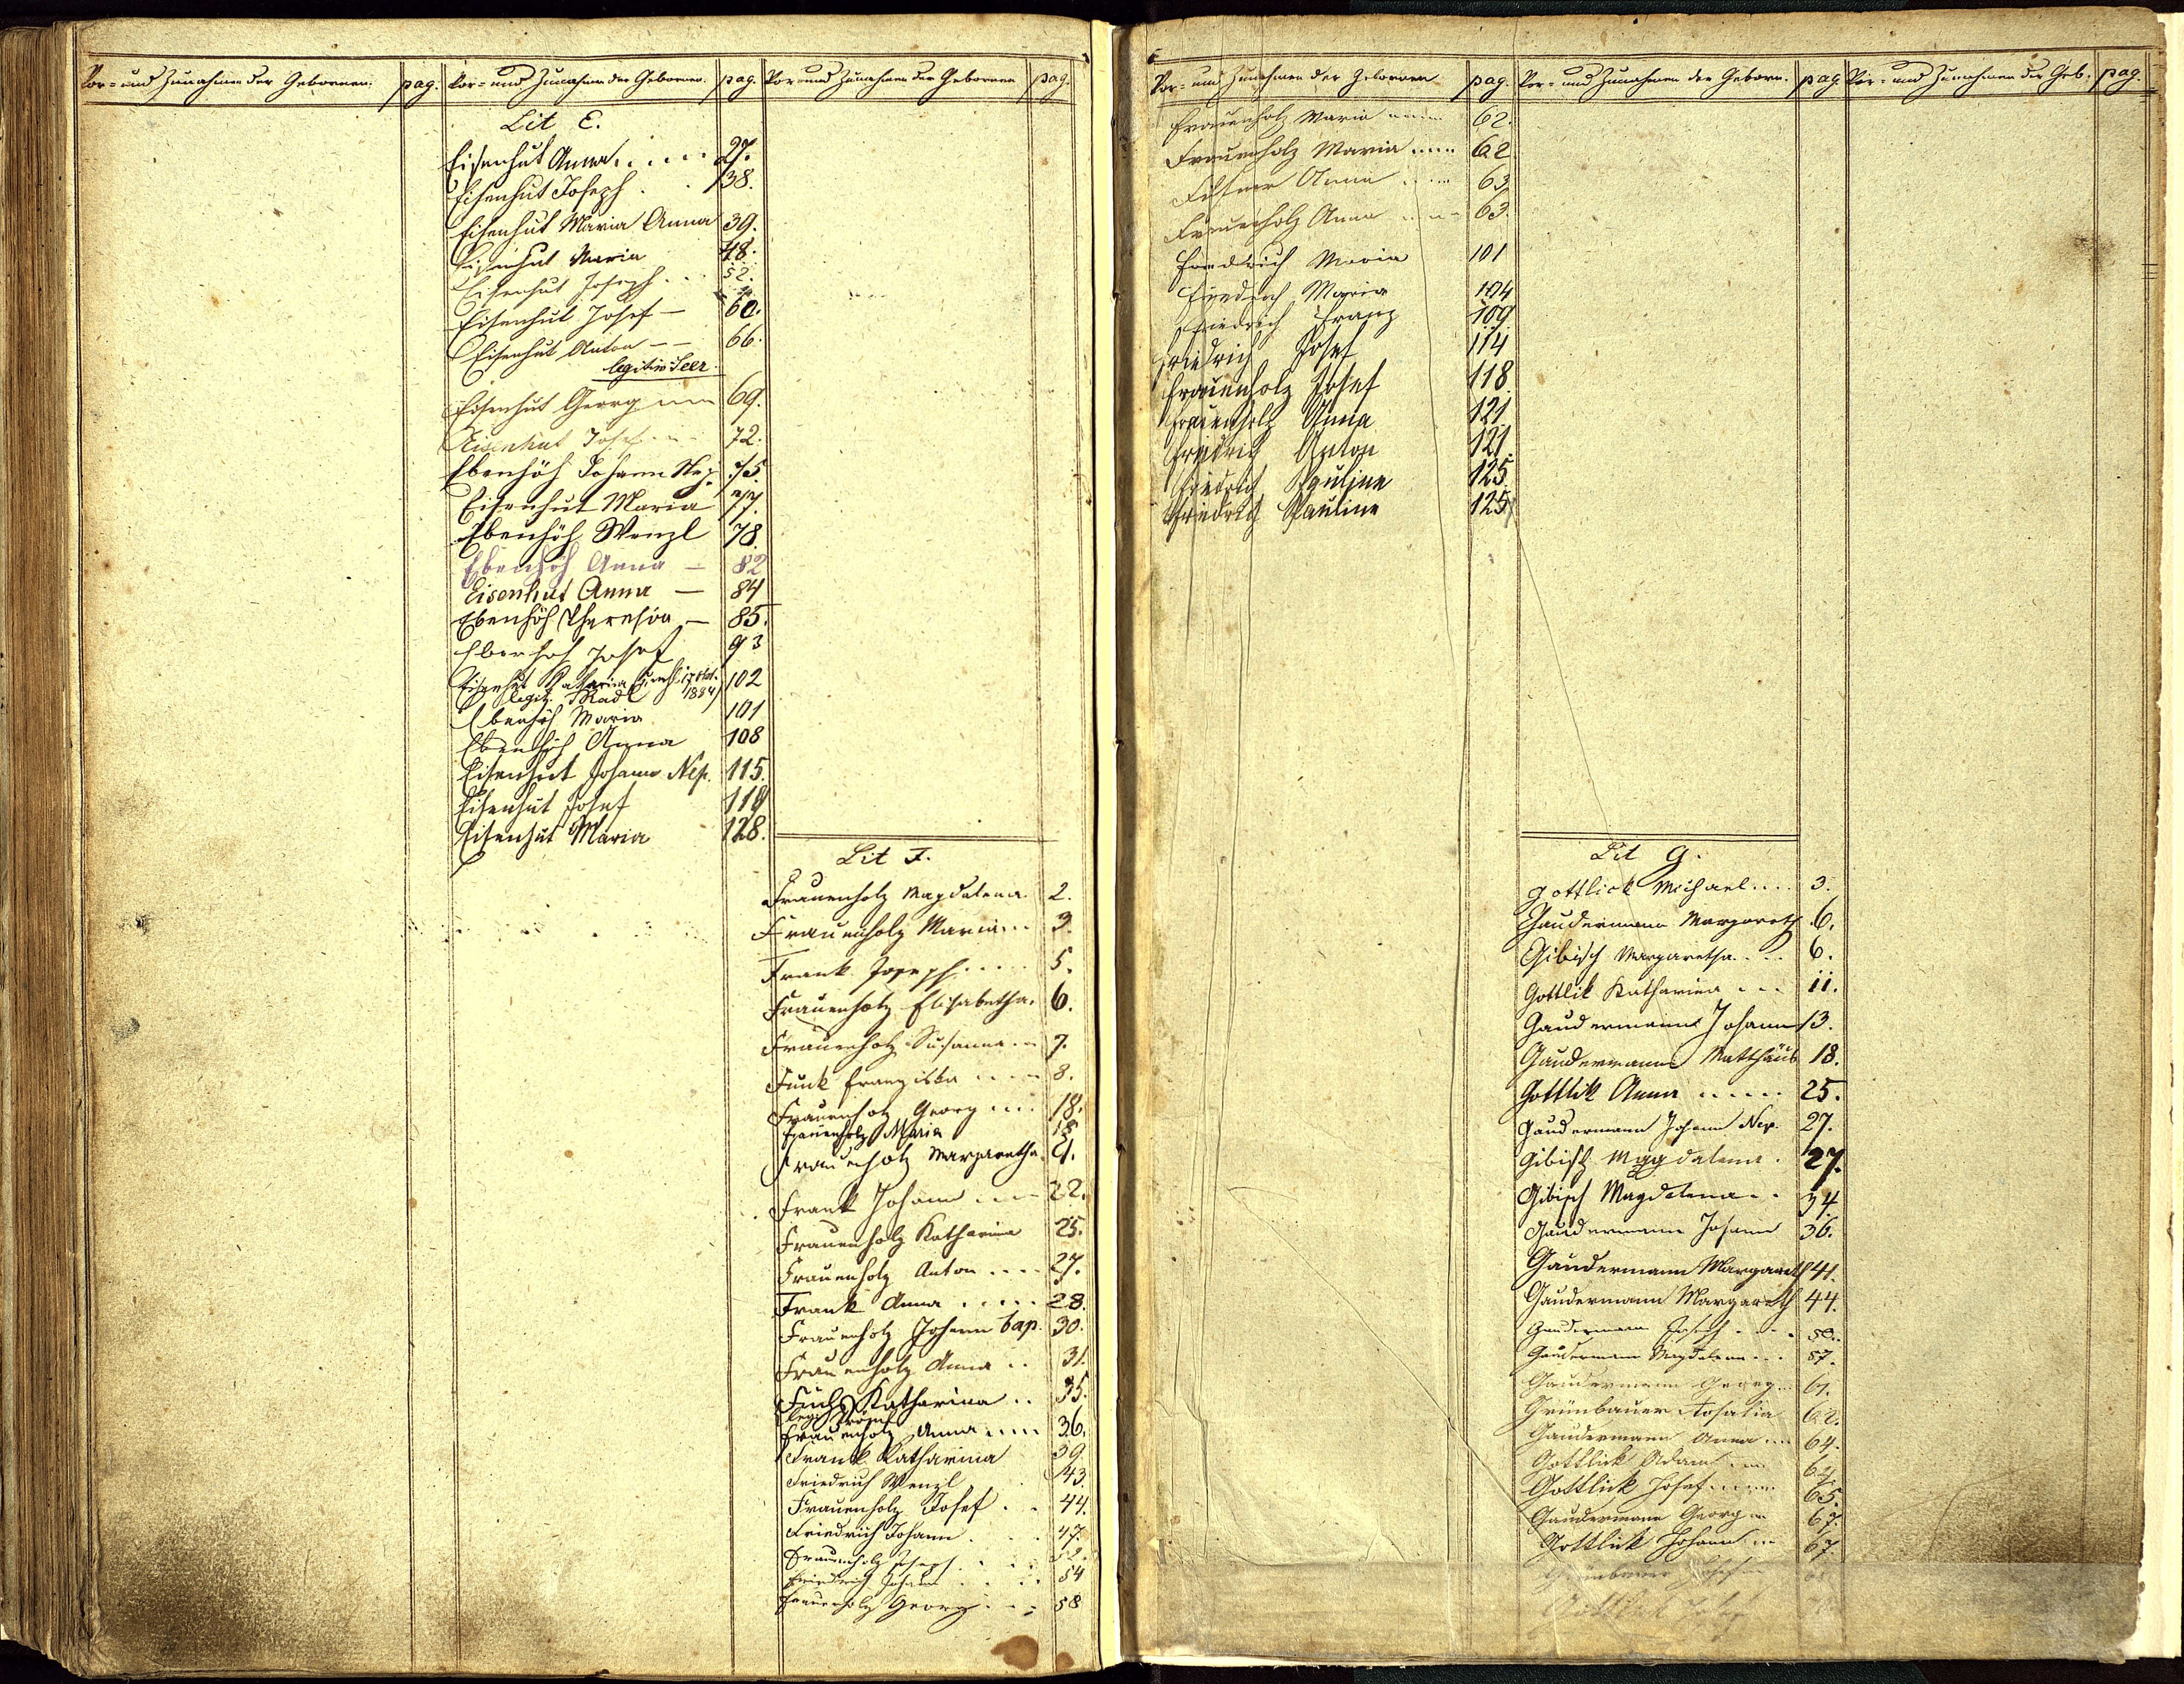 Vor- und Zunahmen der Gebornen. pag. Vor- und Zunahmen der Gebornen. pag. Vor- und Zunahmen der Gebornen pag.
Lit E.
Eisenhut Anna 27.
Eisenhut Joseph 38.
Eisenhut Maria Anna 39.
Eisenhut Maria 48.
Eisenhut Joseph 52.
Eisenhut Josef 60.
Eisenhut Anton 66.
Eisenhut Georg 69.
Eisenhut Josef 72.
Ebenhöh Johann Nep. 75.
Eisenhut Maria 77.
Ebenhöh Wenzl 78.
Ebenhöh Anna — 82
Eisenhut Anna — 84
Ebenhöh Theresia — 85.
Ebenhöh Josef 93
Eisenhut Katharina 102
legit. Radl 1884
Ebenhöh Maria 101
Ebenhöh Anna 108
Eisenhut Johann Nep. 115.
Eisenhut Josef 119
Eisenhut Maria 128.
Lit F.
Frauenholz Magdalena 2.
Frauenholz Maria 3.
Frank Joseph 5.
Frauenholz Elisabetha. 6.
Frauenholz Susanna 7.
Funk Franziska 8.
Frauenholz Georg 18.
Frauenholz Maria 18
Frauenholz Margaretha 21.
Frank Johann 22.
Frauenholz Katharina 25.
Frauenholz Anton 27.
Frank Anna 28.
Frauenholz Johann bap. 30.
Frauenholz Anna 31.
Fuchs Katharina 35.
Frauenholz Anna 36.
Frank Katharina 39
Friedrich Wenzl 43.
Frauenholz Josef 44.
Friedrich Johann 47.
Frauenholz Joseph 52.
Friedrich Johann 54
Frauenholz Georg 58
Vor- und Zunahmen der Gebornen pag. Vor- und Zunahmen der Geborn. pag. Vor- und Zunahmen der Geb. pag.
Frauenholz Maria 62.
Frauenholz Maria 62
Anna 63.
Frauenholz Anna 63.
Friedrich Maria 101
Friedrich Maria 104
Friedrich Franz 109
Friedrich Josef 114
Frauenholz Josef 118
Frauenholz Anna 121
Friedrich Anton 121.
Friedrich Pauline 125
Friedrich Pauline 125
Lit G.
Gottlick Michael 3.
Gaudermann Margareth 6.
Gibisch Margaretha 6.
Gottlik Katharina 11.
Gaudermann Johann 13.
Gaudermann Matthäus 18.
Gottlik Anna 25.
Gaudermann Johann Nep. 27.
Gibisch Magdalena 27.
Gibisch Magdalena 34.
Gaudermann Johann 36.
Gaudermann Margareth 41.
Gaudermann Margareth 44.
Gaudermann Joseph 50.
Gaudermann Magdalena 57.
Gaudermann Georg 61.
Grünbauer Rosalia 62.
Gaudermann Anna 64.
Gottlick Adam 64
Gottlick Josef 65.
Gaudermann Georg 67.
Gottlick Johann 67.
Grünbauer
Gottlick Josef